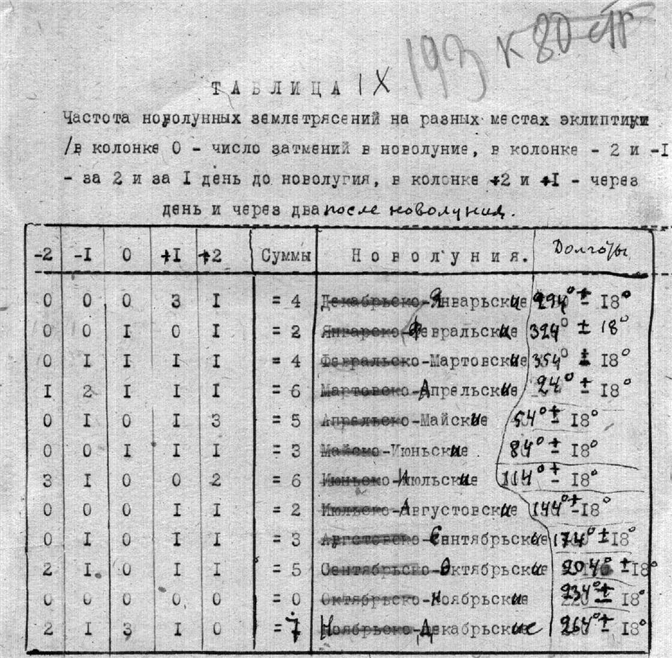 193 к 80 стр
ТАБЛИЦА IX
Частота новолунных землетрясений на разных местах эклиптики
/в колонке 0 - число затмений в новолуние, в колонке - 2 и -I
- за 2 и за I день до новолугия, в колонке +2 и +I - через
день и через два после новолуния.
-2 -I 0 +I +2 Суммы Новолуния. Долготы
0 0 0 3 I = 4 Декабрьско-Январьские 294° ± I8°
0 0 I 0 I = 2 Январско-Февральские 324° ± I8°
0 I I I I = 4 Февральско-Мартовские 354° ± I8°
I 2 I I I = 6 Мартовско-Апрельские 24° ± I8°
0 I 0 I 3 = 5 Апрельско-Майские 54° ± I8°
0 0 I I I = 3 Майско-Июньские 84° ± I8°
3 I 0 0 2 = 6 Июньско-Июльские 114° ± I8°
0 0 0 I I = 2 Июльско-Августовские 144° ± I8°
0 I 0 I I = 3 Августовско-Сентябрьские 174° ± I8°
2 I 0 I I = 5 Сентябрьско-Октябрьские 204° ± I8°
0 0 0 0 0 = 0 Октябрьско-Ноябрьские 234° ± I8°
2 I 3 I 0 = 7 Ноябрьско-Декабрьские 264° ± I8°